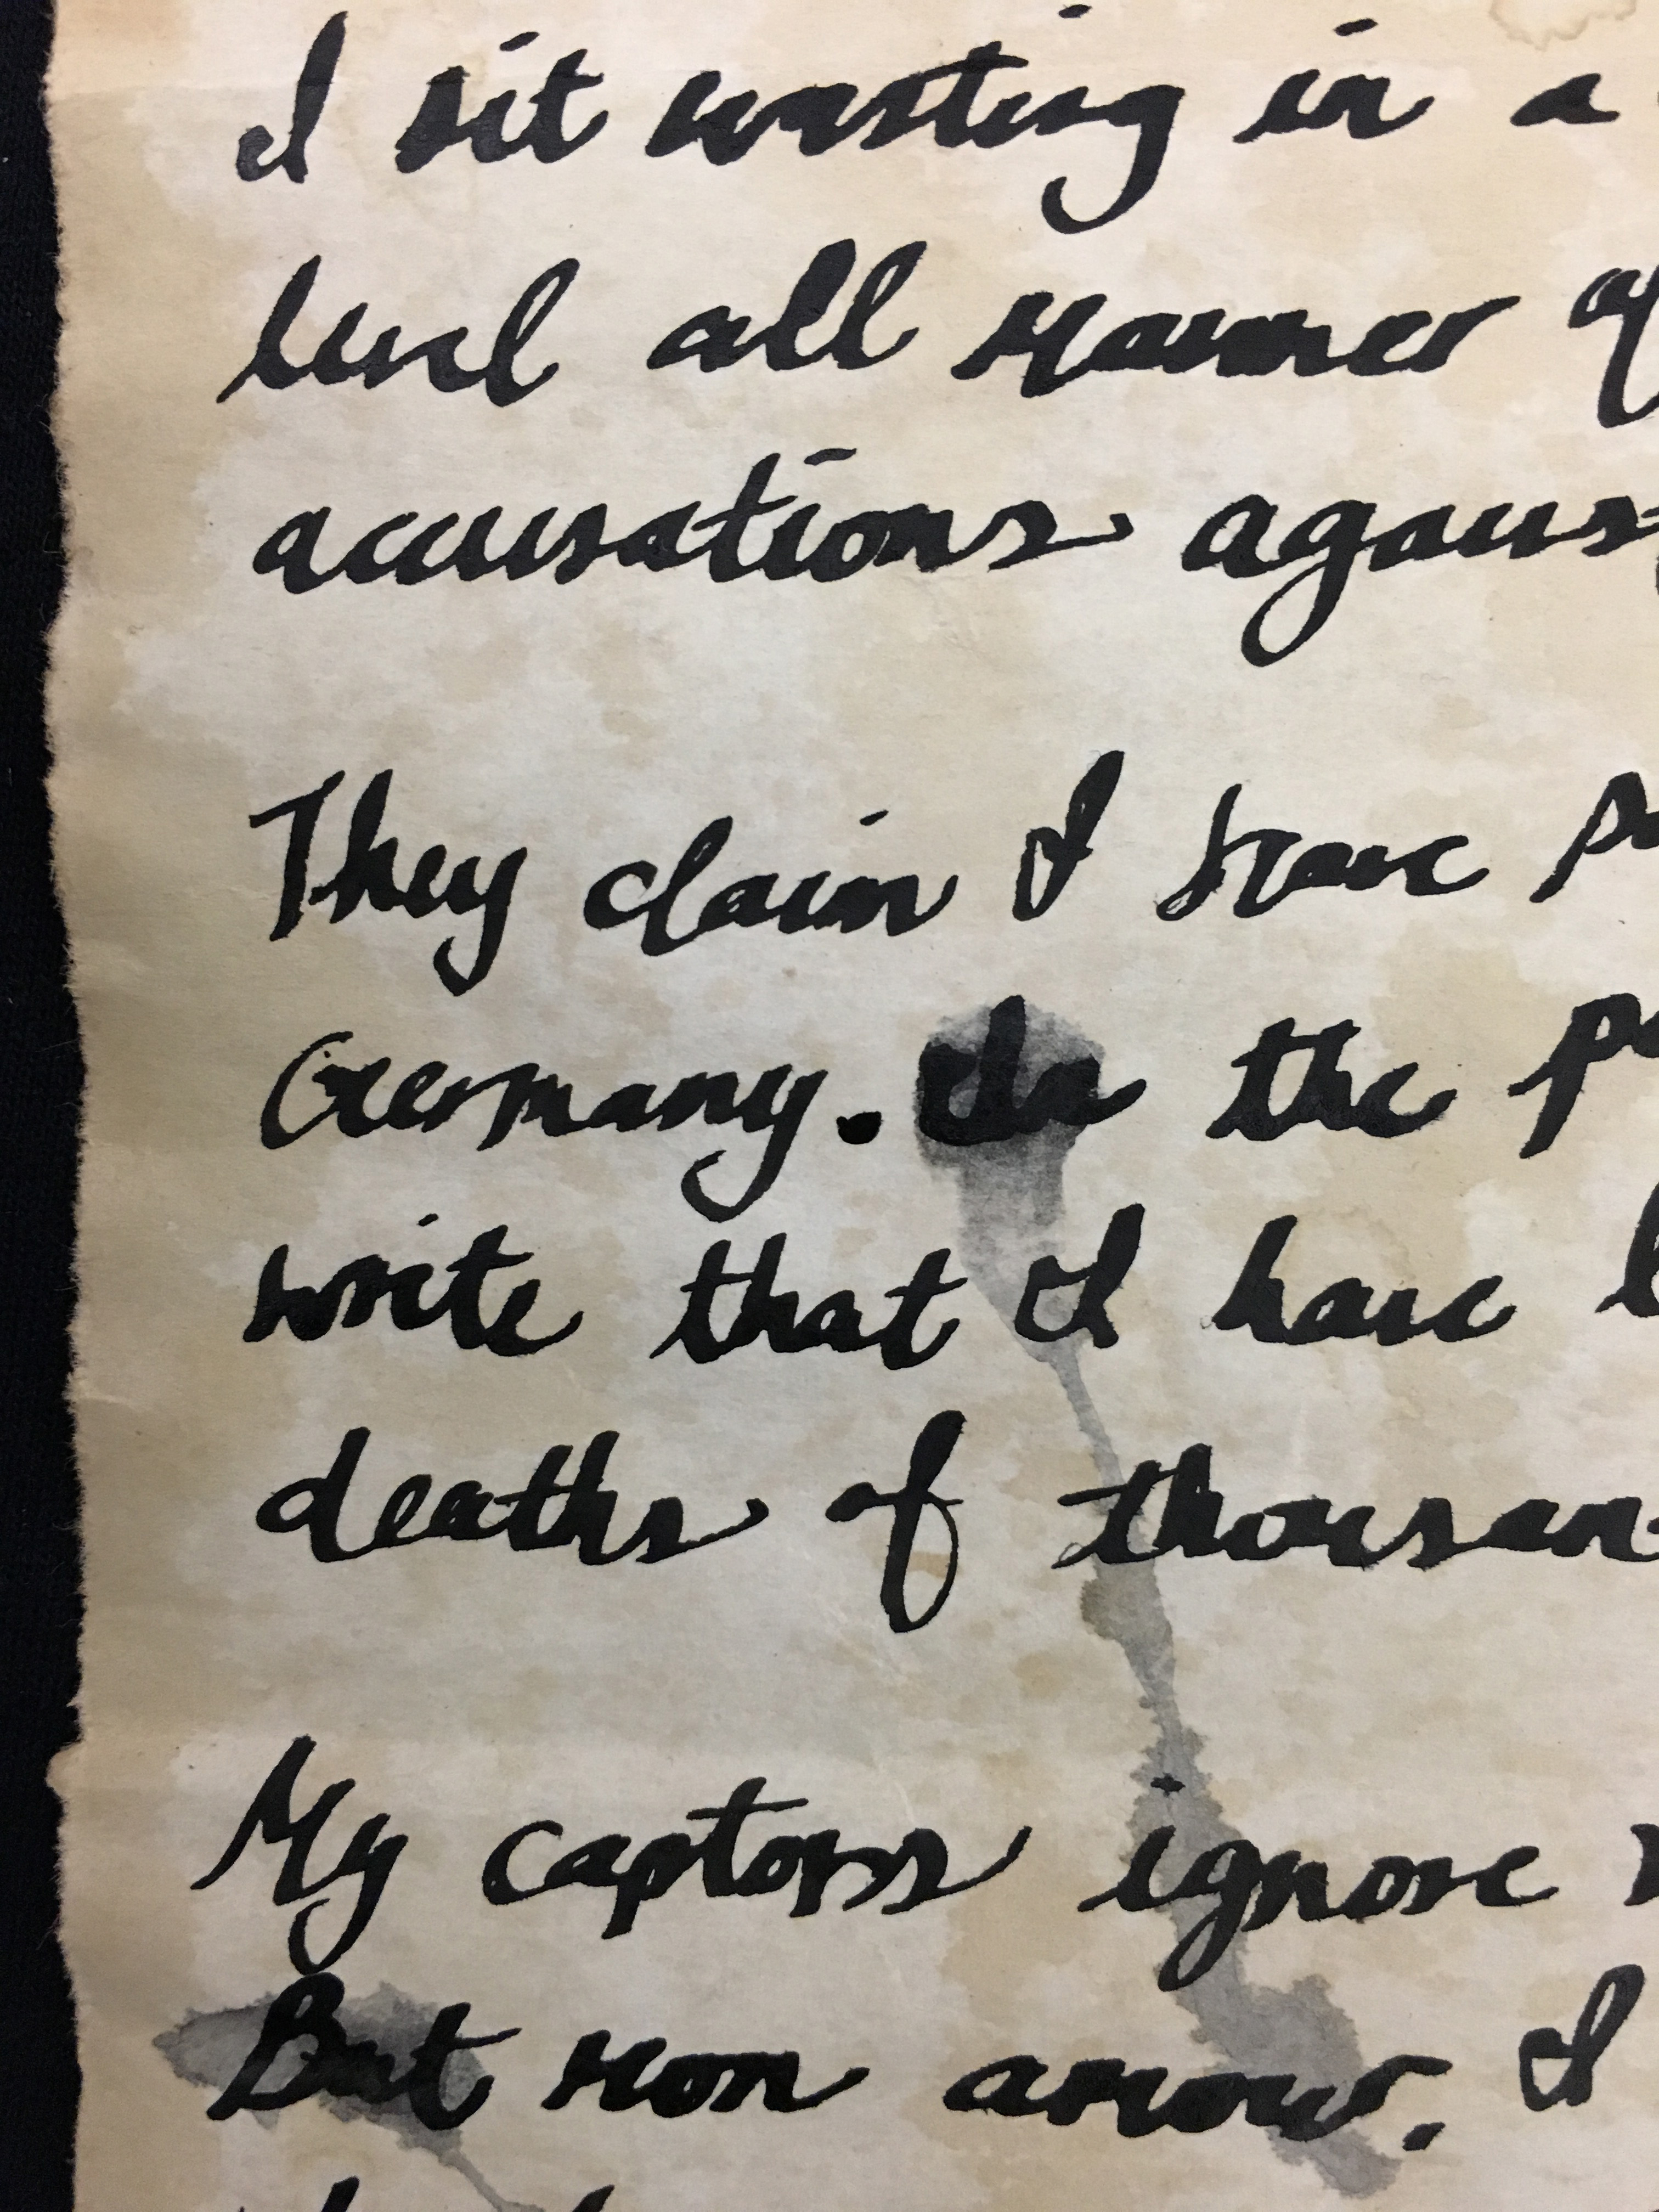 I sit wasting in a
level all manner of
accusations against
They claim I have
Germany. In the
write that I have
deaths of thousan
My captors ignore
But mon amour, I